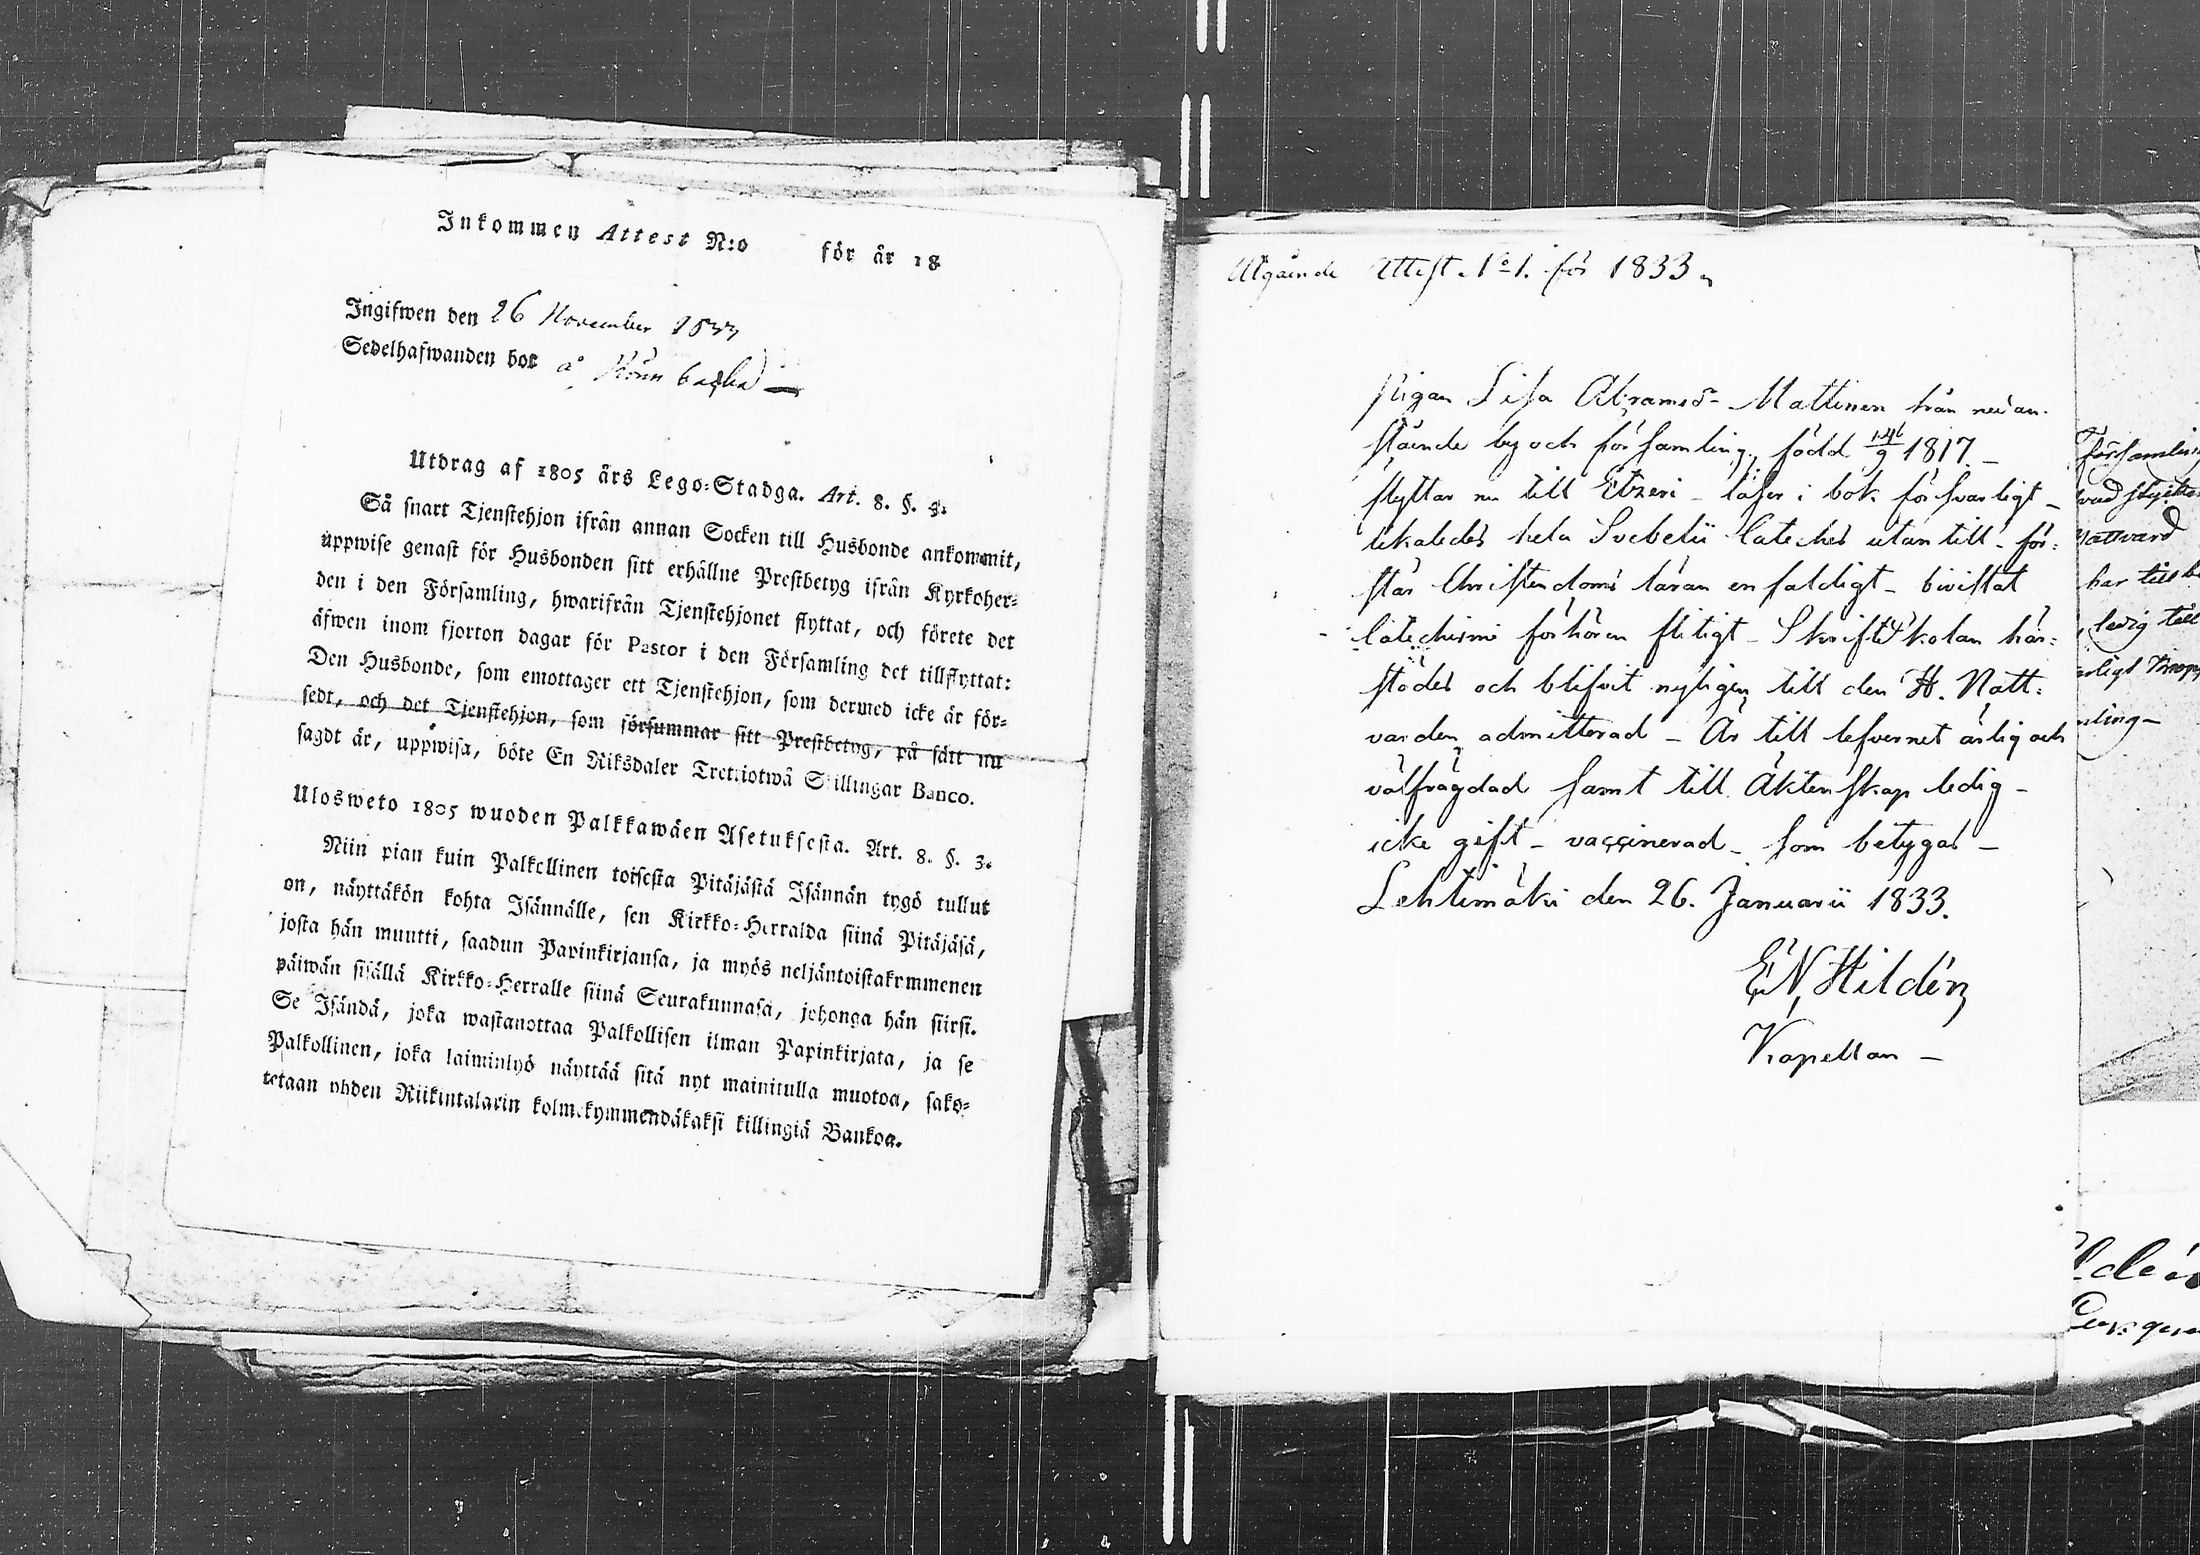 Inkommen Attest N:o för år 18
Ingifwen den 26 November 1833
Sedelhafwanden bor å
Utdrag af 1805 års Lego-Stadga. Art. 8. §. 3.
Så snart Tjenstehjon ifrån annan Socken till Husbonde ankommit,
uppwise genast för Husbonden sitt erhållne Prestbetyg ifrån Kyrkoher-
den i den Församling, hwarifrån Tjenstehjonet flyttat, och förete det
äfwen inom fjorton dagar för Pastor i den Församling det tillflyttat:
Den Husbonde, som emottager ett Tjenstehjon, som dermed icke är för-
sedt, och det Tjenstehjon, som försummar sitt Prestbetyg, på sätt nu
sagdt är, uppwisa, böte En Riksdaler Trettiotwå Skillingar Banco.
Ulosweto 1805 wuoden Palkkawäen Asetuksesta. Art. 8. §. 3.
Niin pian kuin Palkollinen toisesta Pitäjästä Isännän tygö tullut
on, näyttäkön kohta Isännälle, sen Kirkko-Herralda siinä Pitäjäsä,
josta hän muutti, saadun Papinkirjansa, ja myös neljäntoistakymmenen
päiwän sisällä Kirkko-Herralle siinä Seurakunnasa, johonga hän siirsi.
Se Isändä, joka wastanottaa Palkollisen ilman Papinkirjata, ja se
Palkollinen, joka laiminlyö näyttää sitä nyt mainitulla muotoa, sako-
tetaan yhden Riikintalarin kolmekymmendäkaksi killingiä Bankoa.
Utgående Attest. No 1. för 1833.
Pigan Lisa Abramsd- Mattinen från nedan-
stående by och församling, född 9 1817 -
flyttar nu till Etzeri - läser i bok försvarligt -
likaledes hela Svebelii Cateches utantill - för-
står Christendoms läran enfaldigt - bivistat
Catechismi förhören flitigt - Skriftskolan här-
städes och blifvit nyligen till den H. Natt-
varden admitterad - Är till lefvernet ärlig och
välfrägdad samt till Äktenskap ledig -
icke gift - vaccinerad - som betygas -
Lehtimäki den 26. Januarii 1833.
EN Hildén
Kapellan -
Församling
Nattvard
har till
ledig till